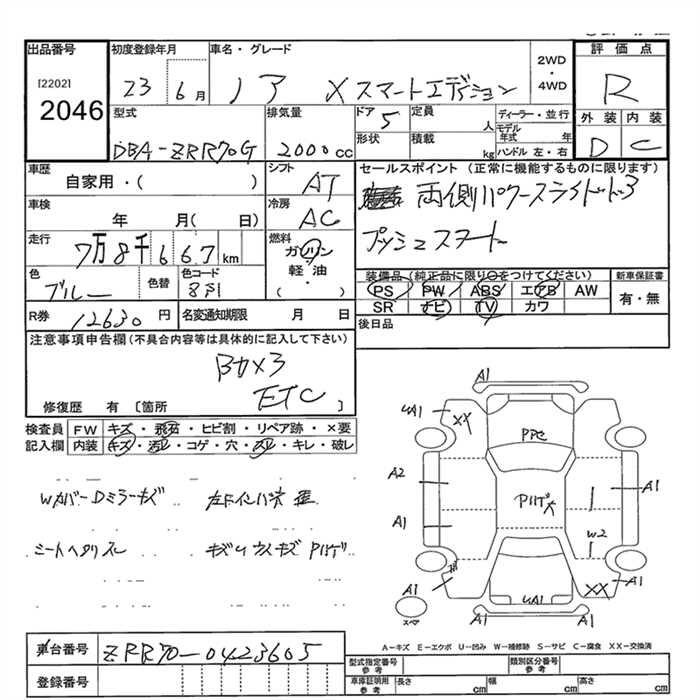 出品番号 初度登録年月 車名・グレード 評価点
[2202] 2046 23 6月 ノア Xスマートエディション 2WD・4WD R
型式 排気量 ドア 5 定員 人 ディーラー・並行 外装 内装
DBA-ZRR70G 2000cc 形状 積載 kg モデル年式 年 ハンドル 左・右 D C
車歴 シフト セールスポイント (正常に機能するものに限ります)
自家用・( ) AT 両側パワースライドドア
車検 年 月( 日) 冷房 AC プッシュスタート
走行 7万8千667km 燃料 ガソリン・軽油・( )
色 ブルー 色替 色コード
装備品(純正品に限り○をつけてください) 新車保証書
PS PW ABS エアB AW 有・無
SR ナビ TV カワ
R券 12630円 名変通知期限 月 日 後日品
注意事項申告欄(不具合内容等は具体的に記入して下さい)
Bカメラ
ETC
修復歴 有 〔箇所 〕
検査員記入欄 FW キズ・飛石・ヒビ割・リペア跡・×要
内装 キズ・汚レ・コゲ・穴・スレ・キレ・破レ
WカバーDミラーキズ
シートヘタリスレ
A1
UA1 XX
A2 A1
A1
W2
A1 A1
XX
UA1
A1
スペア
A1
A-キズ E-エクボ U-凹み W-補修跡 S-サビ C-腐食 XX-交換済
車台番号 ZRR70-0423605
登録番号
型式指定番号 参考 類別区分番号 参考
車庫証明用 参考 長さ cm 幅 cm 高さ cm